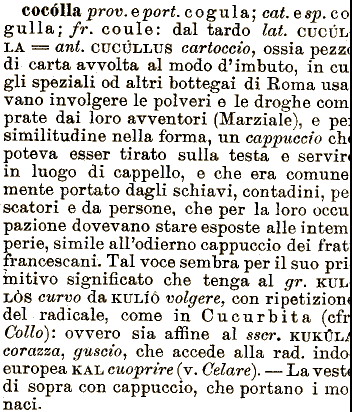 cocólla prov. e port. cogula; cat. e sp. co
gulla; fr. coule: dal tardo lat. CUCÚL
LA = ant. CUCÚLLUS cartoccio, ossia pezz
di carta avvolta al modo d'imbuto, in cu
gli speziali od altri bottegai di Roma usa
vano involgere le polveri e le droghe com
prate dai loro avventori (Marziale), e pe
similitudine nella forma, un cappuccio ch
poteva esser tirato sulla testa e servir
in luogo di cappello, e che era comune
mente portato dagli schiavi, contadini, pe
scatori e da persone, che per la loro occu
pazione dovevano stare esposte alle intem
perie, simile all'odierno cappuccio dei frat
francescani. Tal voce sembra per il suo pri
mitivo significato che tenga al gr. KUL
LÒS curvo da KULÍÔ volgere, con ripetizion
del radicale, come in Cucurbita (cfr
Collo): ovvero sia affine al sscr. KUKÛLA
corazza, guscio, che accede alla rad. indo
europea KAL cuoprire (v. Celare). — La vest
di sopra con cappuccio, che portano i mo
naci.